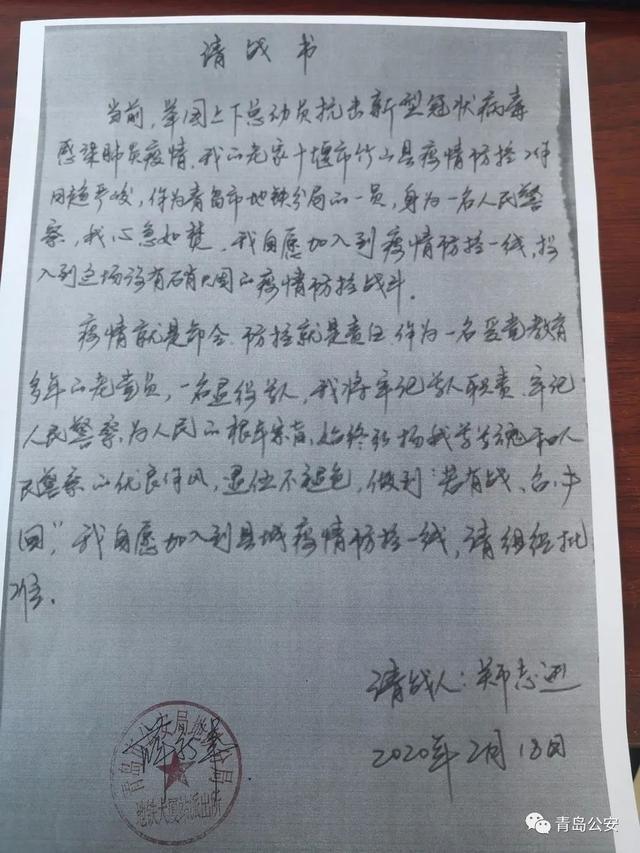 请战书
当前，举国上下总动员抗击新型冠状病毒
感染肺炎疫情，我的老家十堰市竹山县疫情防控工作
日趋严峻，作为青岛市地铁分局的一员，身为一名人民警
察，我心急如焚，我自愿加入到疫情防控一线，投
入到这场没有硝烟的疫情防控战斗。
疫情就是命令，防控就是责任，作为一名受党教育
多年的老党员，一名退役军人，我将牢记军人职责、牢记
人民警察为人民的根本宗旨，始终弘扬我军军魂和人
民警察的优良作风，退伍不褪色，做到“若有战、召必
回”，我自愿加入到县城疫情防控一线，请组织批
准。
请战人：郑志
2020年2月13日
青岛 安局 分局
地铁大厦站派出所
青岛公安